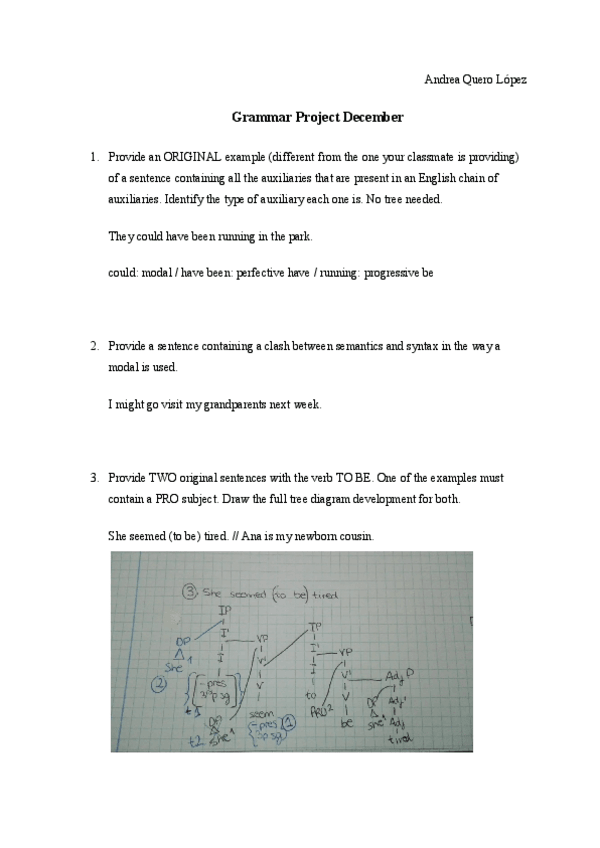 Andrea Quero López
Grammar Project December
1. Provide an ORIGINAL example (different from the one your classmate is providing)
of a sentence containing all the auxiliaries that are present in an English chain of
auxiliaries. Identify the type of auxiliary each one is. No tree needed.
They could have been running in the park.
could: modal / have been: perfective have / running: progressive be
2. Provide a sentence containing a clash between semantics and syntax in the way a
modal is used.
I might go visit my grandparents next week.
3. Provide TWO original sentences with the verb TO BE. One of the examples must
contain a PRO subject. Draw the full tree diagram development for both.
She seemed (to be) tired. // Ana is my newborn cousin.
③ She seemed (to be) tired
IP
DP I' VP IP
She 1 I V' I' VP
② I V I V' Adj P
-pres to PRO2 V DP Adj'
3rd p sg be she1 Adj
t1 DP seem tired
t2 she1 -pres ①
3p sg